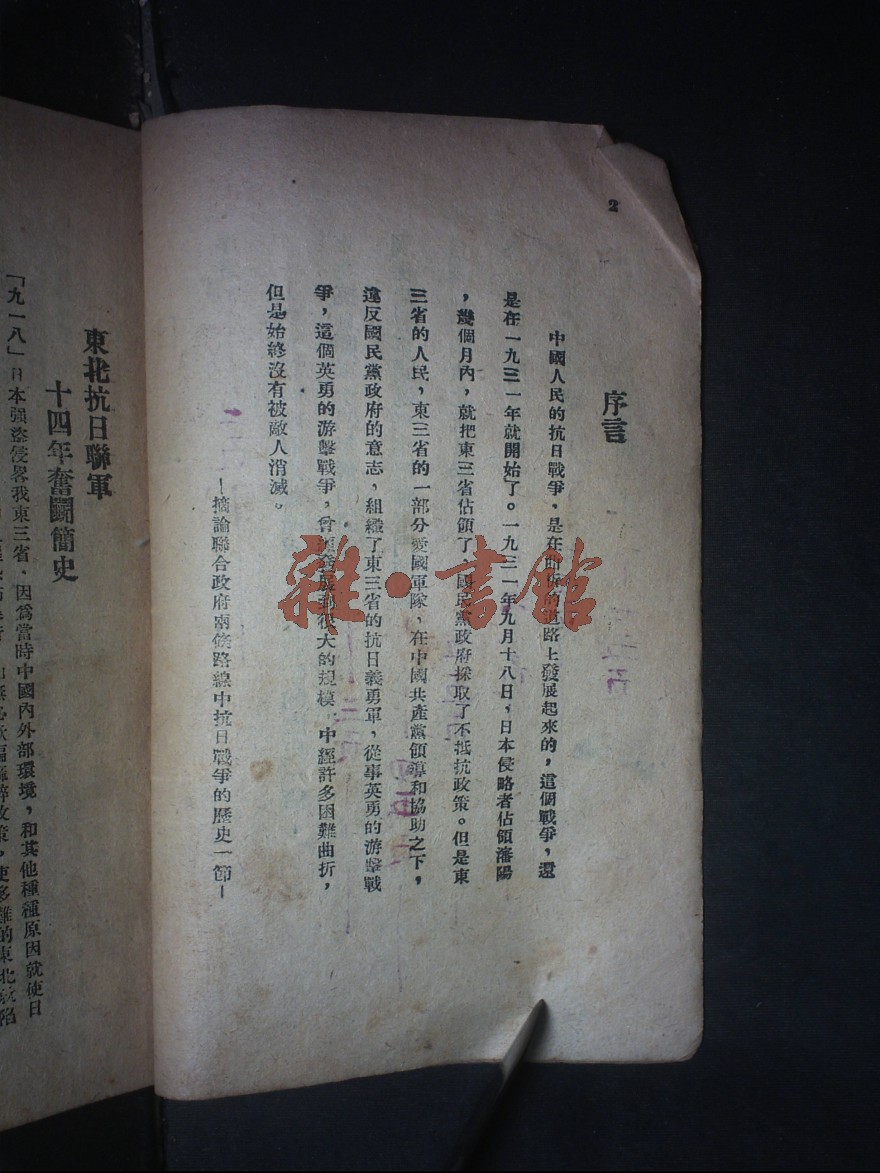 2
序言
中國人民的抗日戰爭，是在曲折的道路上發展起來的，這個戰爭，還
是在一九三一年就開始了。一九三一年九月十八日，日本侵略者佔領瀋陽
，幾個月內，就把東三省佔領了。國民黨政府採取了不抵抗政策。但是東
三省的人民，東三省的一部分愛國軍隊，在中國共產黨領導和協助之下，
違反國民黨政府的意志，組織了東三省的抗日義勇軍，從事英勇的游擊戰
爭，這個英勇的游擊戰爭，曾經發展到很大的規模，中經許多困難曲折，
但是始終沒有被敵人消滅。
—摘論聯合政府兩條路線中抗日戰爭的歷史一節—
東北抗日聯軍
十四年奮鬭簡史
「九一八」日本强盜侵畧我東三省、因爲當時中國內外部環境，和其他種種原因就使日
政策，使多難的東北
雜·書館